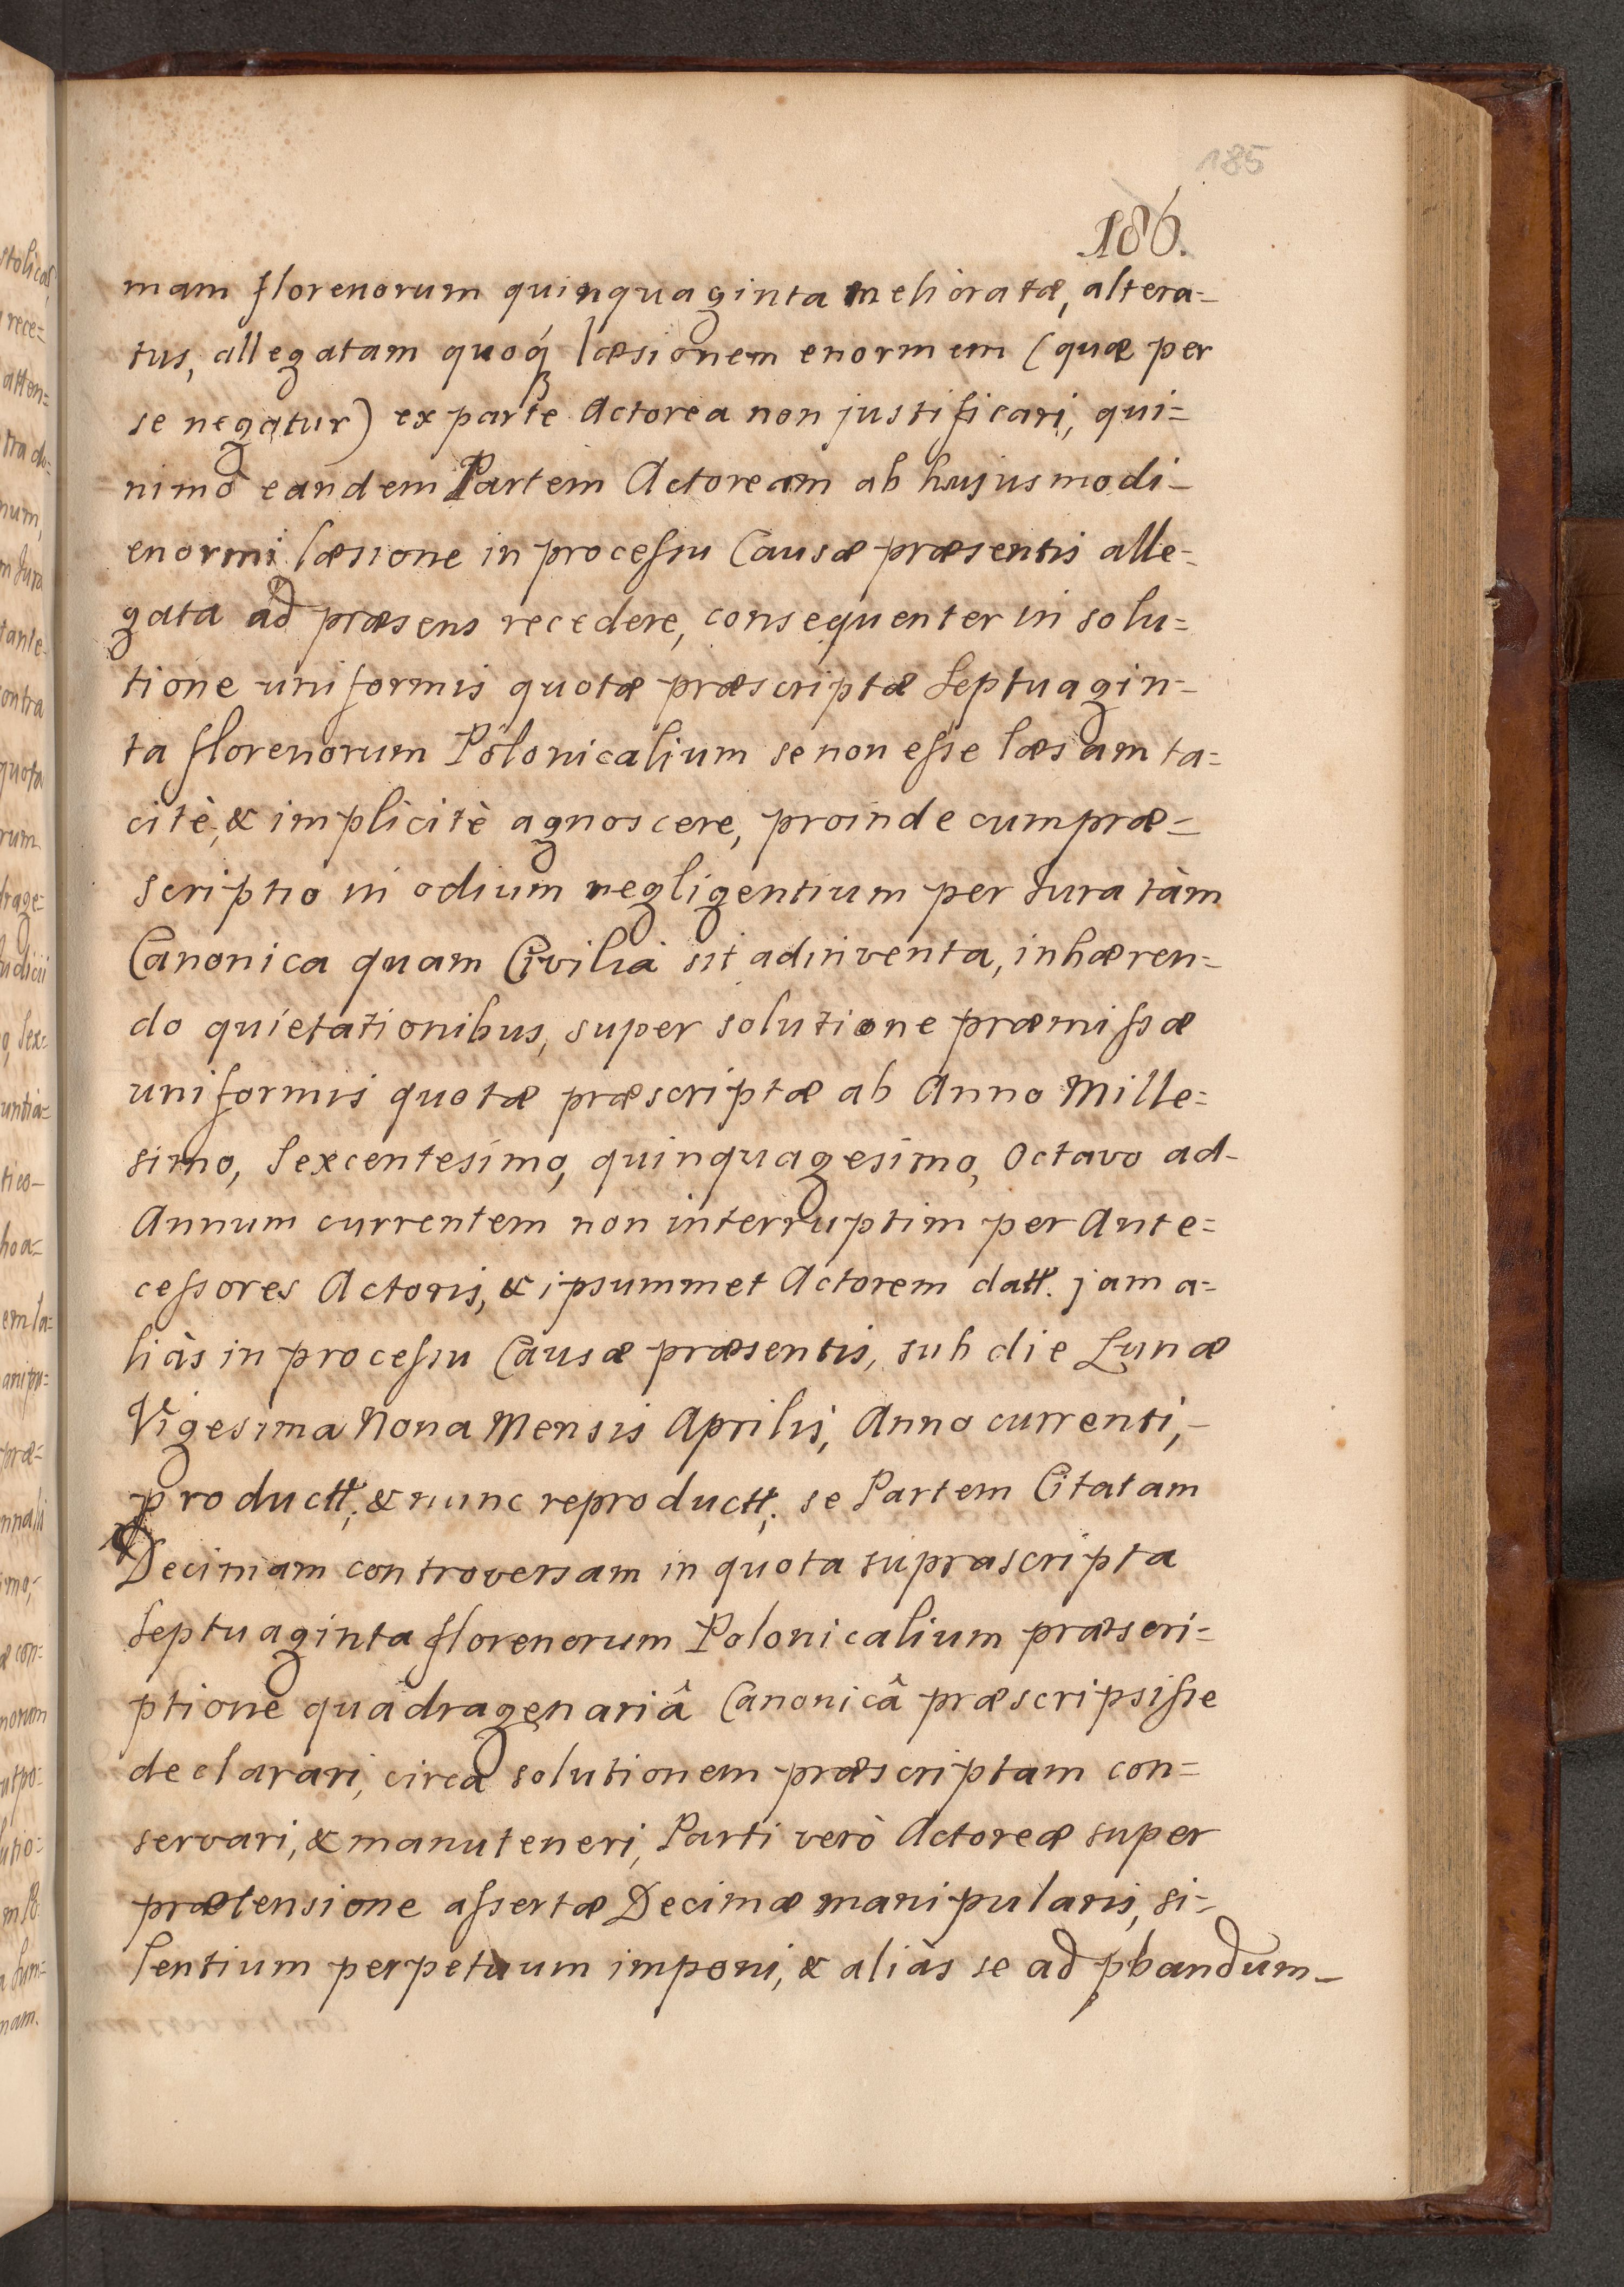 185
186.
mam florenorum quinquaginta melioratæ, altera=
tus, allegatam quoq́ꝫ læsionem enormem (quæ per
se negatur) ex parte Actorea non justificari, qui=
nimò eandem Partem Actoream ab hujusmodi-
enormi læsione in processu Causæ præsentis alle=
gata ad præsens recedere, consequenter in solu=
tione uniformis quotæ præscriptæ Septuagin=
ta florenorum Polonicalium se non esse læsam ta=
citè, & implicitè agnoscere, proinde cum præ=
scriptio in odium negligentium per Iura tàm
Canonica quam Civilia sit adinventa, inhæren=
do quietationibus, super solutione præmissæ
uniformis quotæ præscriptæ ab Anno Mille=
simo, Sexcentesimo, quinquagesimo, Octavo ad-
Annum currentem non interruptim per Ante=
cessores Actoris, & ipsummet Actorem datt. jam a=
liàs in processu Causæ præsentis, sub die Lunæ
Vigesima Nona Mensis Aprilis, Anno currenti,-
productt, & nunc reproductt, se Partem Citatam
Decimam controversam in quota suprascripta
Septuaginta florenorum Polonicalium præscri=
ptione quadragenariâ Canonicâ præscripsisse
declarari, circa solutionem præscriptam con=
servari, & manuteneri, Parti verò Actoreæ super
prætensione assertæ Decimæ manipularis, si=
lentium perpetuum imponi, & aliàs se ad ꝓbandum-
stolicas
rece=
atton=
tra do=
num,
m Jura
tante
contra
quota
rum
drage=
Judicii
o, Sex=
untia=
tico-
ho a=
em la=
anipu=
præ=
nnali
imo,-
æ con=
norum
utpo=
utio=
nam.